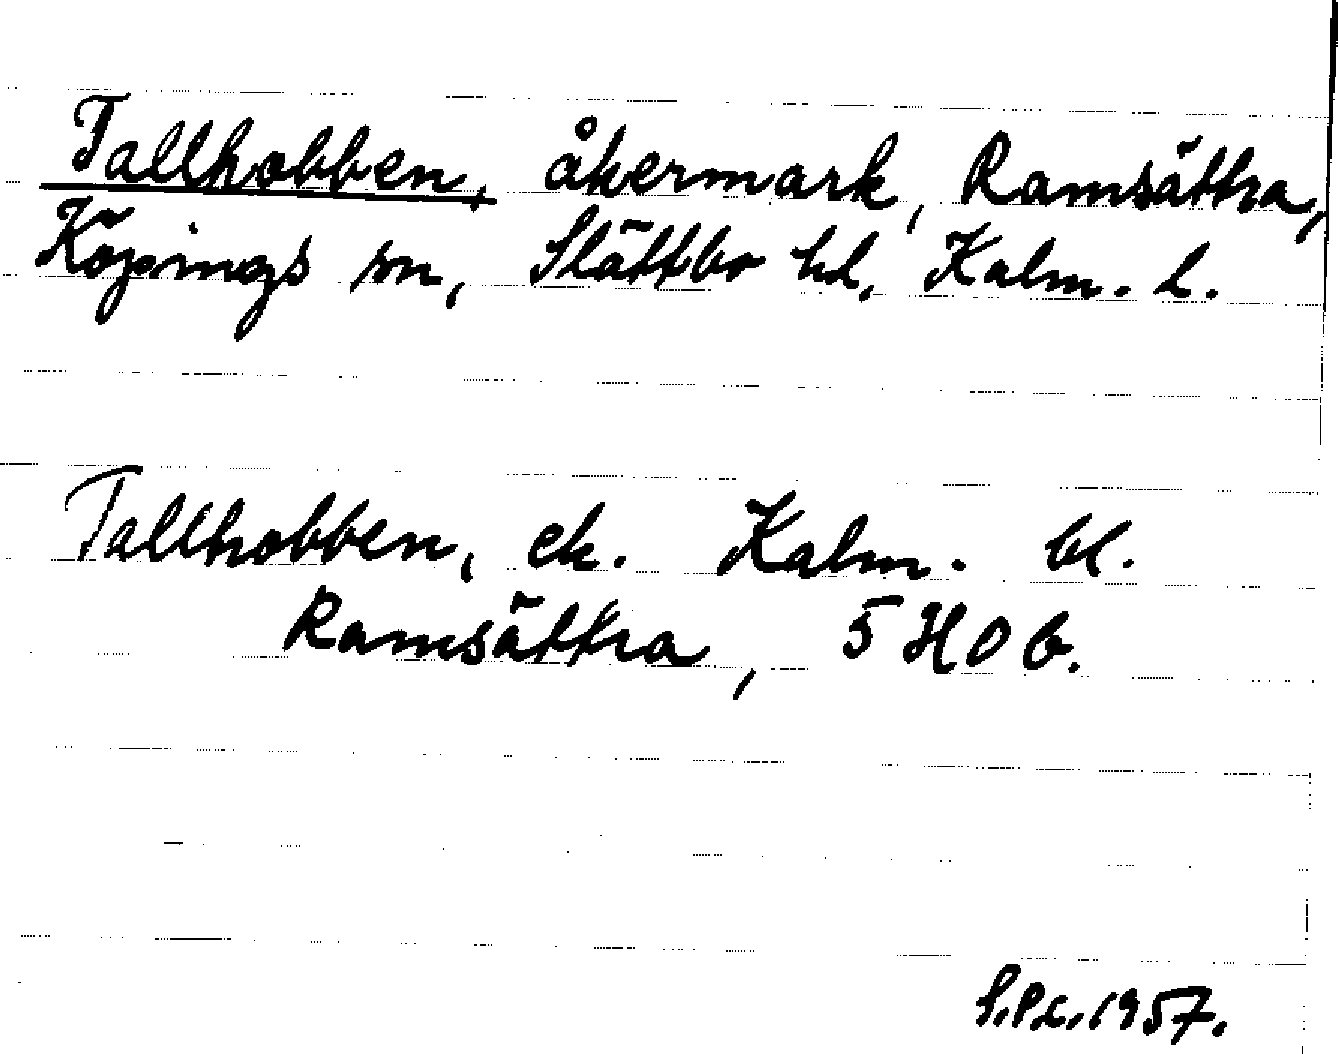 Tallhobben, åkermark, Ramsättra,
Köpings sn, Slättbo hd, Kalm. l.
Tallhobben, ek. Kalm. bl.
Ramsättra, 5 H 0 b.
S.P.L. 1957.